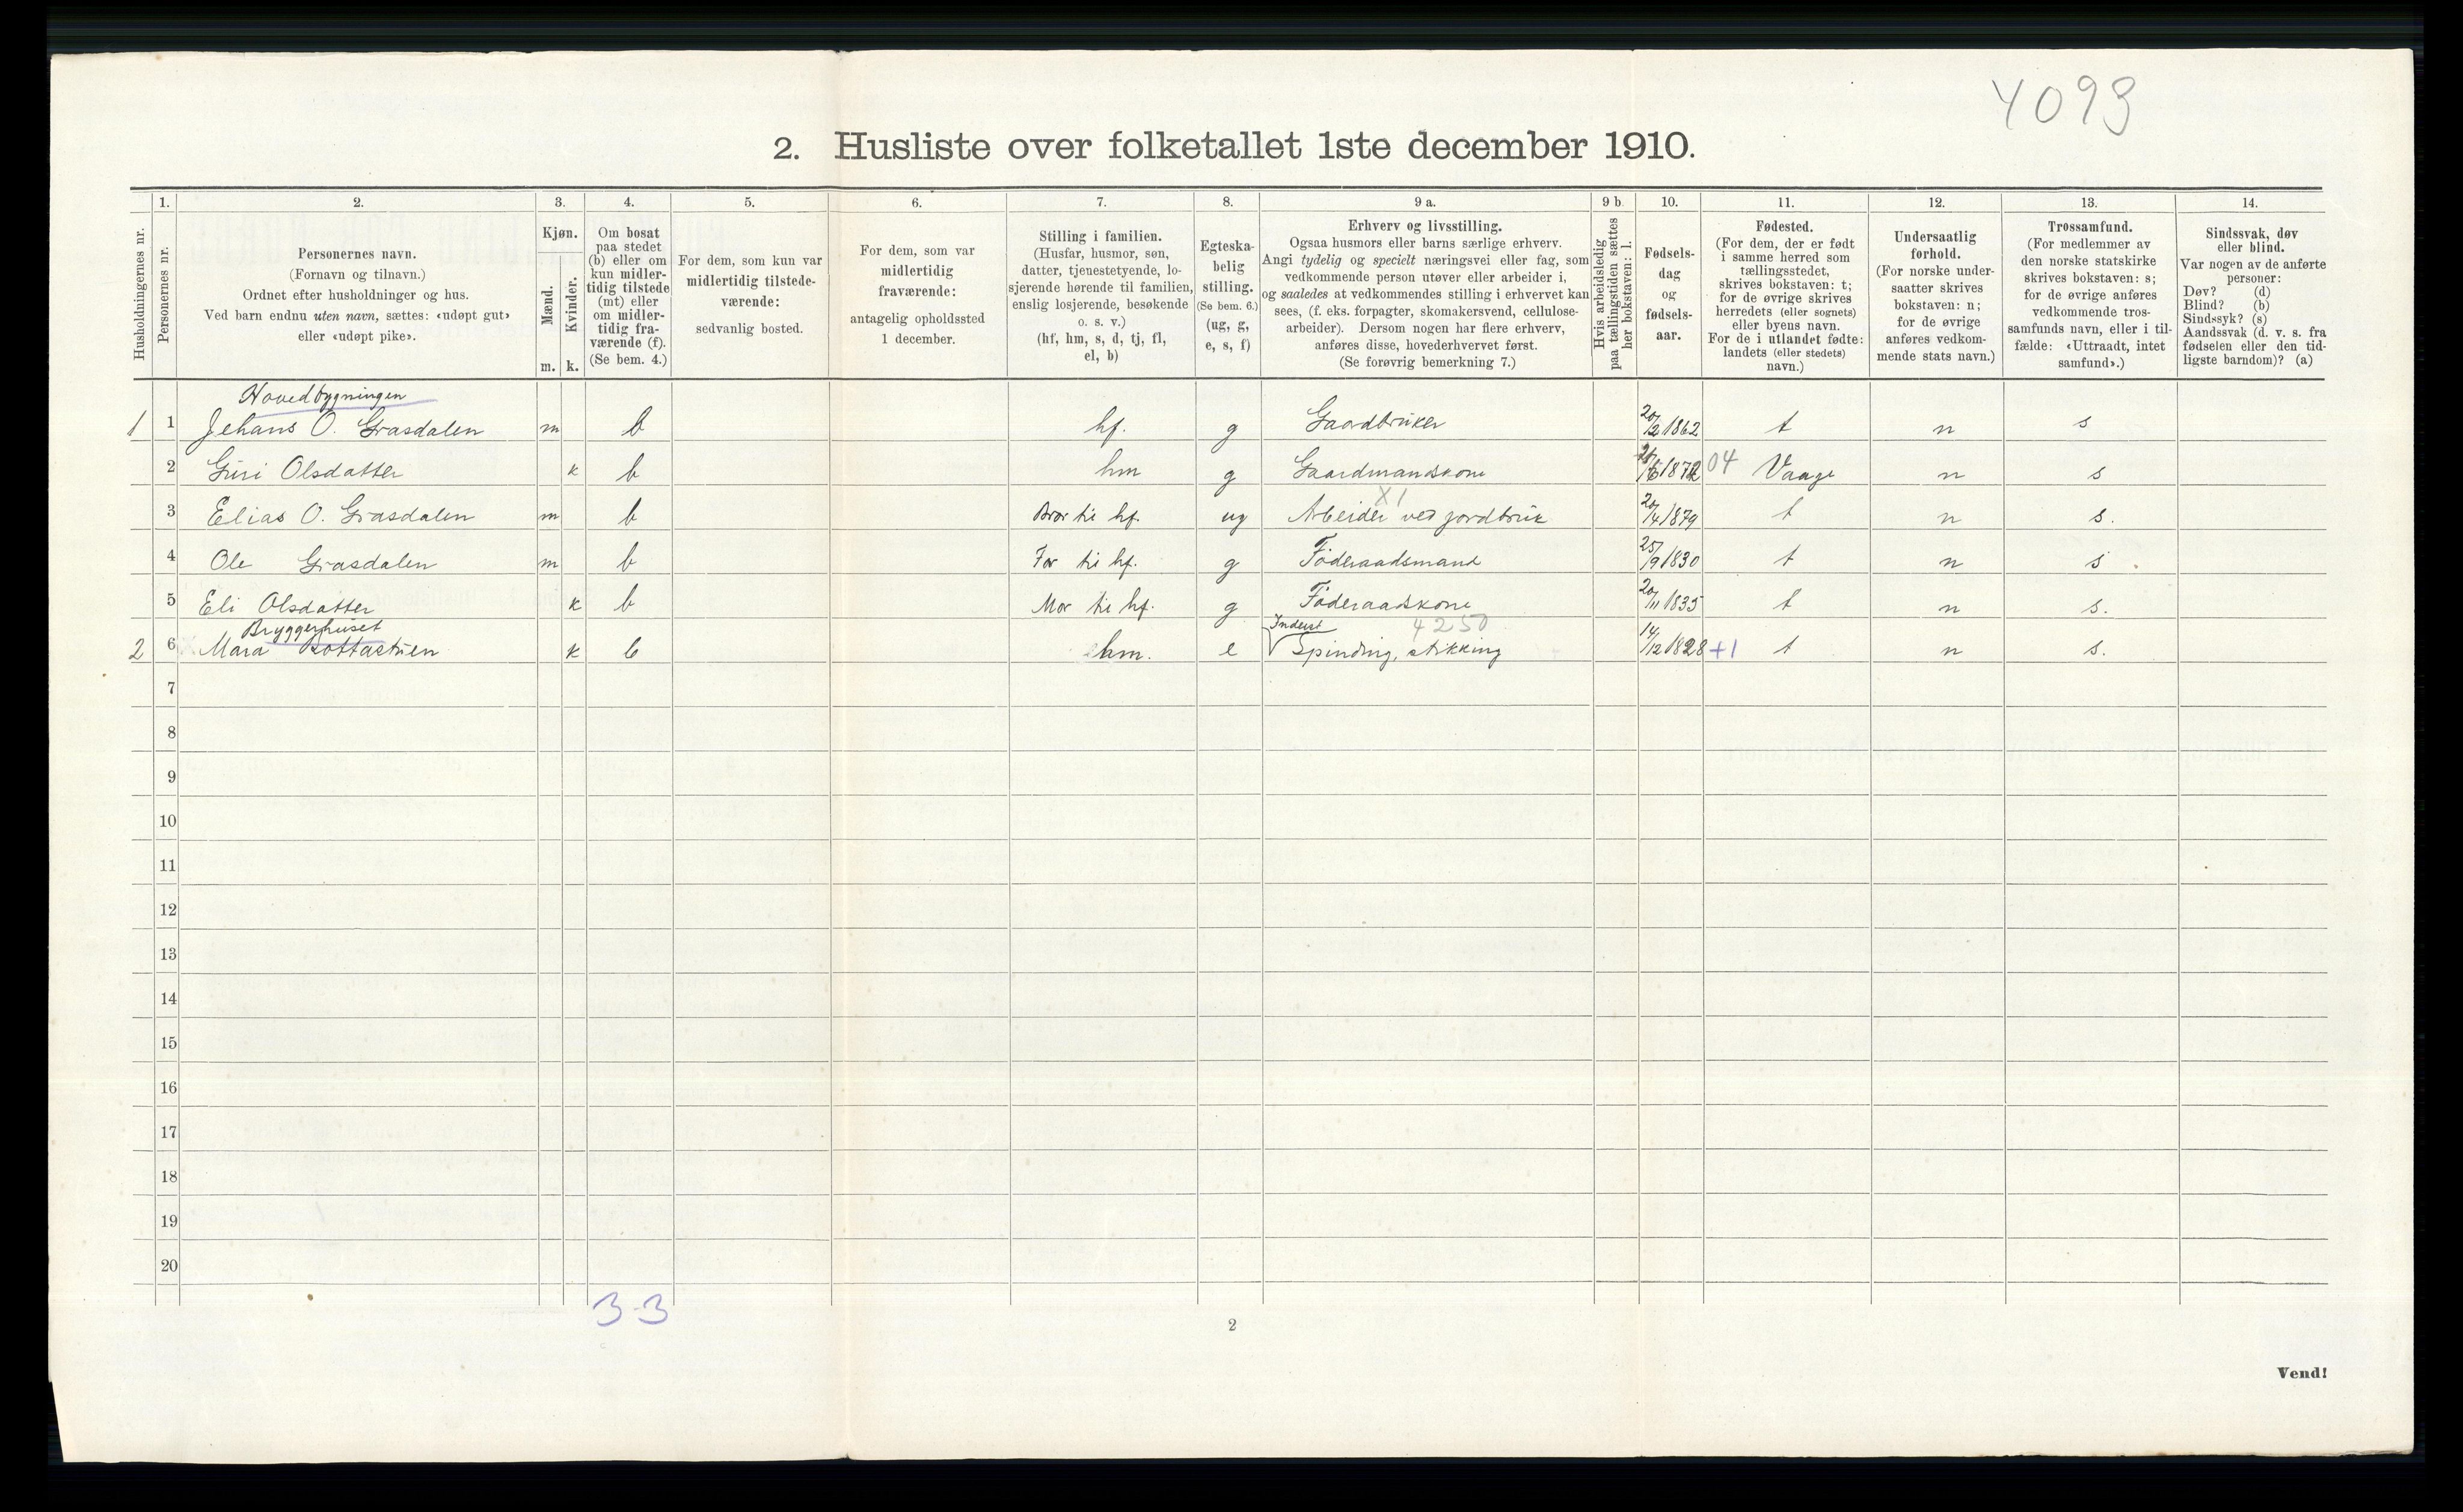 4093
2. Husliste over folketallet 1ste december 1910.
Husholdningernes nr.
1.
Personernes nr.
2.
Personernes navn.
(Fornavn og tilnavn.)
Ordnet efter husholdninger og hus.
Ved barn endnu uten navn, sættes: «udøpt gut»
eller «udøpt pike».
3.
Kjøn.
Mænd.
Kvinder.
m. k.
4.
Om bosat
paa stedet
(b) eller om
kun midler-
tidig tilstede
(mt) eller
om midler-
tidig fra-
værende (f).
(Se bem. 4.)
5.
For dem, som kun var
midlertidig tilstede-
værende:
sedvanlig bosted.
6.
For dem, som var
midlertidig
fraværende:
antagelig opholdssted
1 december.
7.
Stilling i familien.
(Husfar, husmor, søn,
datter, tjenestetyende, lo-
sjerende hørende til familien,
enslig losjerende, besøkende
o. s. v.)
(hf, hm, s, d, tj, fl,
el, b)
8.
Egteska-
belig
stilling.
(Se bem. 6.)
(ug, g,
e, s, f)
9 a.
Erhverv og livsstilling.
Ogsaa husmors eller barns særlige erhverv.
Angi tydelig og specielt næringsvei eller fag, som
vedkommende person utøver eller arbeider i,
og saaledes at vedkommendes stilling i erhvervet kan
sees, (f. eks. forpagter, skomakersvend, cellulose-
arbeider). Dersom nogen har flere erhverv,
anføres disse, hovederhvervet først.
(Se forøvrig bemerkning 7.)
9 b.
Hvis arbeidsledig
paa tællingstiden sættes
her bokstaven: l.
10.
Fødsels-
dag
og
fødsels-
aar.
11.
Fødested.
(For dem, der er født
i samme herred som
tællingsstedet,
skrives bokstaven: t;
for de øvrige skrives
herredets (eller sognets)
eller byens navn.
For de i utlandet fødte:
landets (eller stedets)
navn.)
12.
Undersaatlig
forhold.
(For norske under-
saatter skrives
bokstaven: n;
for de øvrige
anføres vedkom-
mende stats navn.)
13.
Trossamfund.
(For medlemmer av
den norske statskirke
skrives bokstaven: s;
for de øvrige anføres
vedkommende tros-
samfunds navn, eller i til-
fælde: «Uttraadt, intet
samfund».)
14.
Sindssvak, døv
eller blind.
Var nogen av de anførte
personer:
Døv? (d)
Blind? (b)
Sindssyk? (s)
Aandssvak (d. v. s. fra
fødselen eller den tid-
ligste barndom)? (a)
Hovedbygningen
1 1 Jehans O. Grasdalen m b hf. g Gaardbruker 20/2 1862 t n s
2 Guri Olsdatter k b hm g Gaardmandskone 1872 04 Vaage n s
X1
3 Elias O. Grasdalen m b Bror til hf. ug Arbeider ved jordbruk 20/4 1879 t n s.
4 Ole Grasdalen m b Far til hf. g Føderaadsmand 25/9 1830 t n s
5 Eli Olsdatter k b Mor til hf. g Føderaadskone 20/11 1835 t n s.
Bryggerhuset Inderst 4250
2 6 X Mara k b hm. e Spinding, strikking 14/12 1828 +1 t n s.
7
8
9
10
11
12
13
14
15
16
17
18
19
20
3-3
2
Vend!